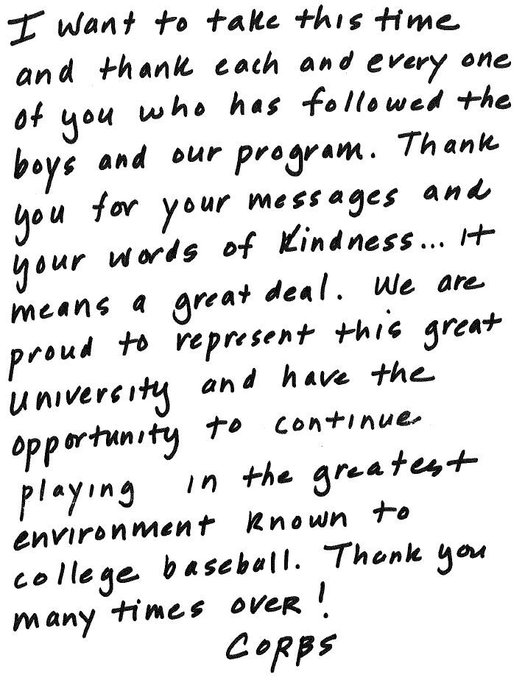 I want to take this time
and thank each and every one
of you who has followed the
boys and our program. Thank
you for your messages and
your words of kindness... It
means a great deal. We are
proud to represent this great
university and have the
opportunity to continue
playing in the greatest
environment known to
college baseball. Thank you
many times over!
CORBS